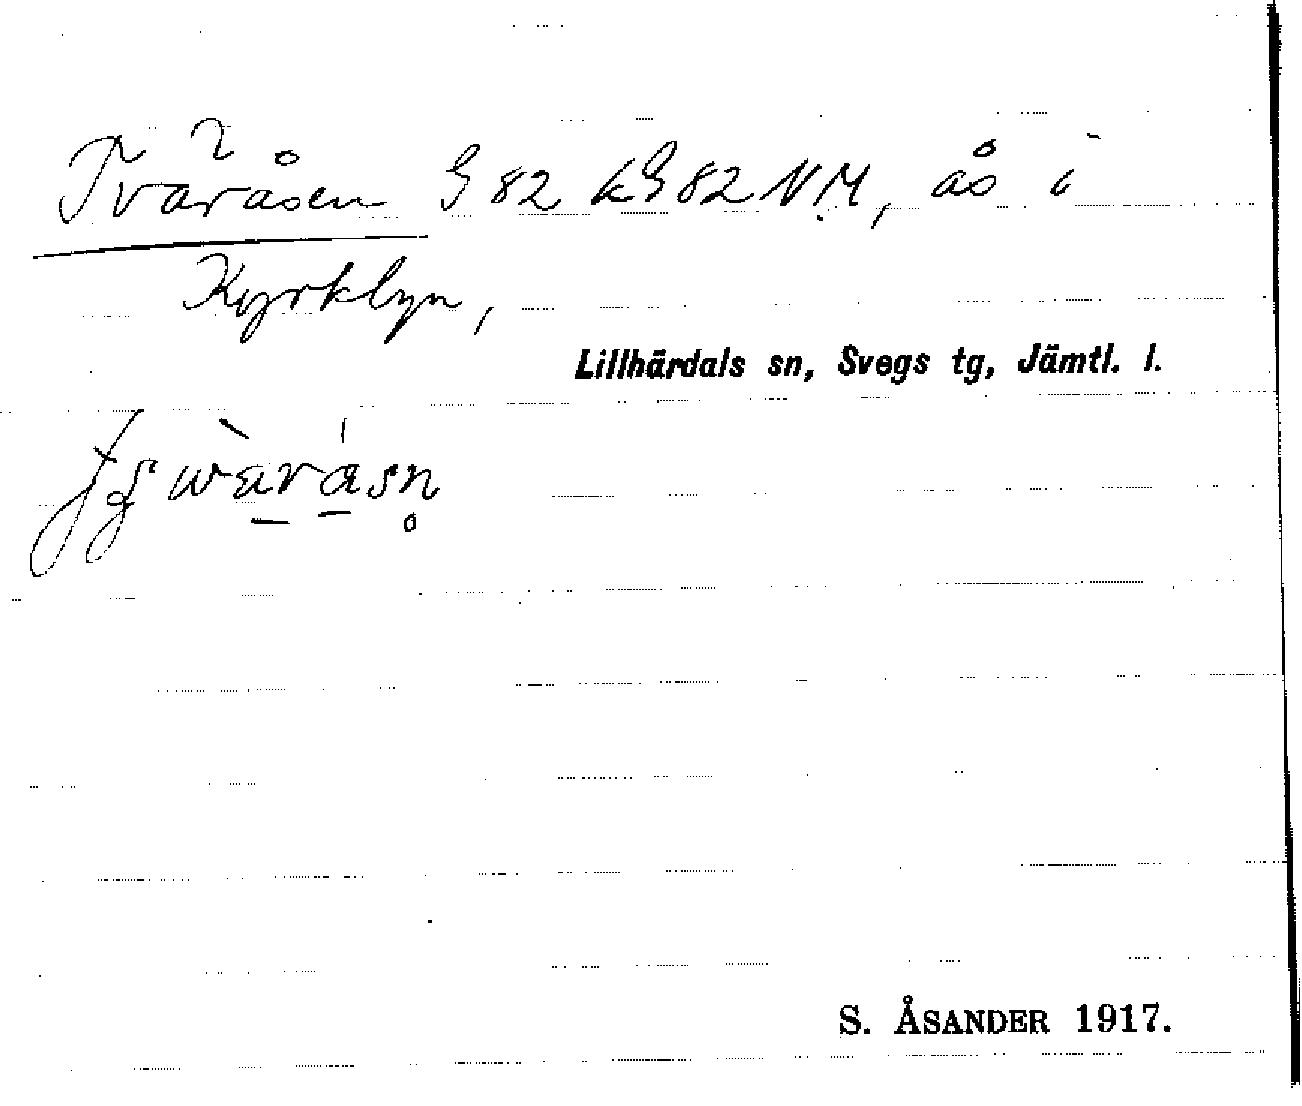 Tväråsen G 82 kG 82 NM, ås i
Kyrkbyn,
Lillhärdals sn, Svegs tg, Jämtl. l.
S. ÅSANDER 1917.